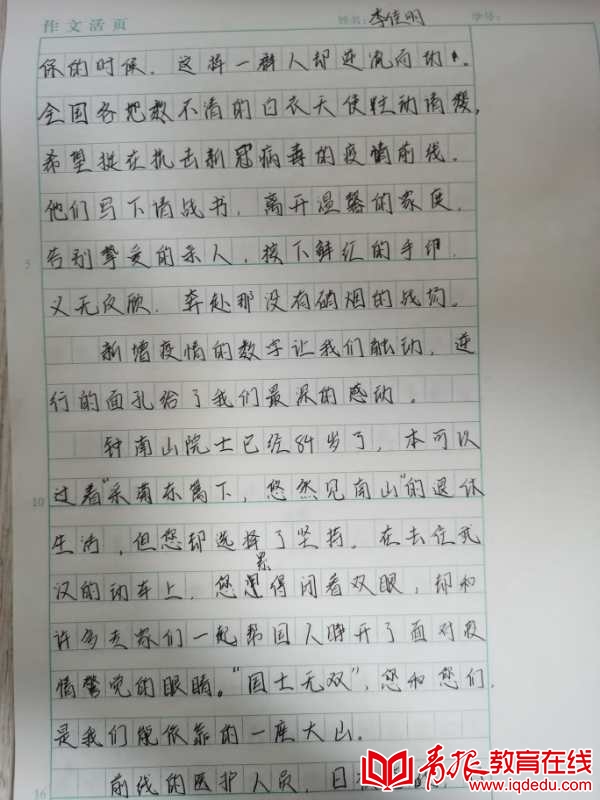 作文活页 姓名: 李佳明 学号:
保的时候，这样一群人却逆流而动。
全国各地数不清的白衣天使主动请缨，
希望挺在抗击新冠病毒的疫情前线。
他们写下请战书，离开温馨的家庭，
5 告别挚爱的亲人，按下鲜红的手印，
义无反顾，奔赴那没有硝烟的战场。
新增疫情的数字让我们触动，逆
行的面孔给了我们最深的感动。
钟南山院士已经84岁了，本可以
10 过着"采菊东篱下，悠然见南山"的退休
生活，但您却选择了坚持。在去往武
汉的动车上，您累得闭着双眼，却和
许多专家们一起帮国人睁开了面对疫
情警觉的眼睛。"国士无双"，您和您们，
是我们能依靠的一座大山。
16 前线的医护人员，日
青报教育在线
www.iqdedu.com